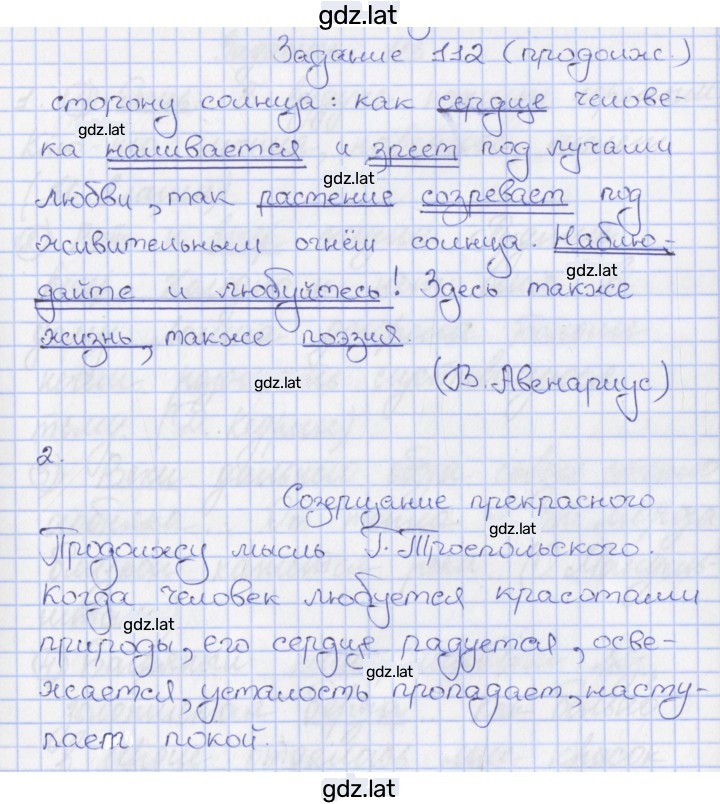 gdz.lat
Задание 112 (продолж.)
сторону солнца: как сердце челове-
gdz.lat
ка наливается и зреет под лучами
gdz.lat
любви, так растение созревает под
живительным огнём солнца. Наблю-
gdz.lat
дайте и любуйтесь! Здесь также
жизнь, также поэзия.
gdz.lat
(В. Авенариус)
2.
Созерцание прекрасного
gdz.lat
Продолжу мысль Г. Троепольского.
Когда человек любуется красотами
gdz.lat
природы, его сердце радуется, осве-
gdz.lat
жается, усталость пропадает, насту-
пает покой.
gdz.lat